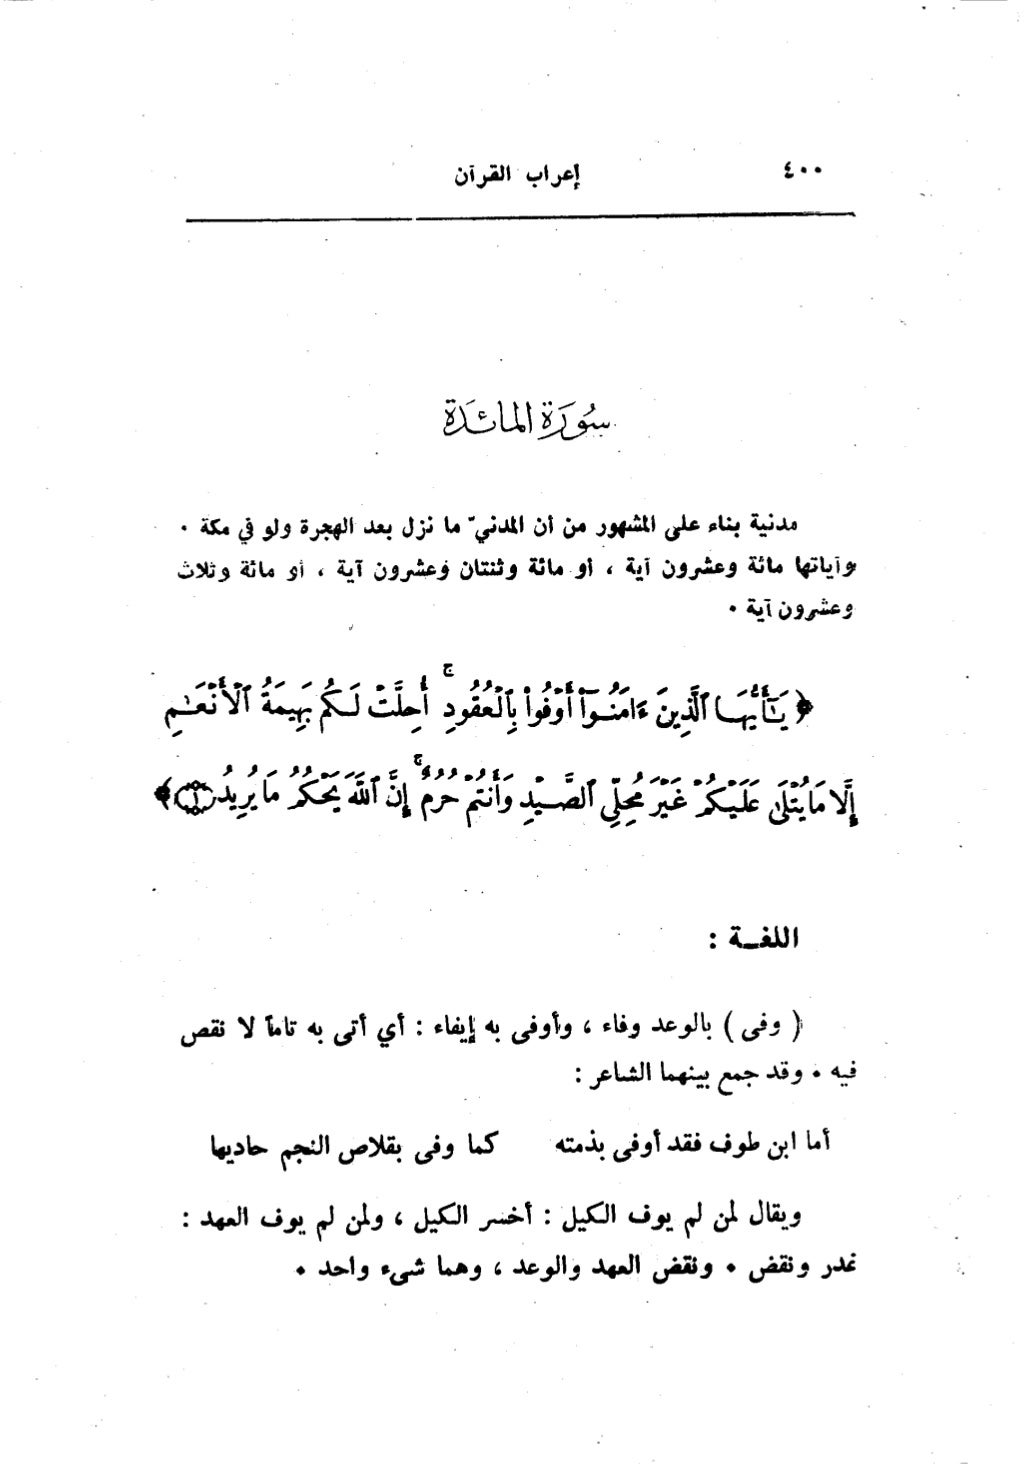 ٤٠٠
إعراب القرآن
سُورَة المائدَة
مدنية بناء على المشهور من أن المدنيّ ما نزل بعد الهجرة ولو في مكة .
وآياتها مائة وعشرون آية ، أو مائة وثنتان وعشرون آية ، أو مائة وثلاث
وعشرون آية .
﴿ يَـٰٓأَيُّهَا ٱلَّذِينَ ءَامَنُوٓاْ أَوۡفُواْ بِٱلۡعُقُودِۚ أُحِلَّتۡ لَكُم بَهِيمَةُ ٱلۡأَنۡعَـٰمِ
إِلَّا مَا يُتۡلَىٰ عَلَيۡكُمۡ غَيۡرَ مُحِلِّي ٱلصَّيۡدِ وَأَنتُمۡ حُرُمٌۚ إِنَّ ٱللَّهَ يَحۡكُمُ مَا يُرِيدُ ١ ﴾
اللغـة :
( وفى ) بالوعد وفاء ، وأوفى به إيفاء : أي أتى به تاماً لا نقص
فيه . وقد جمع بينهما الشاعر :
أما ابن طوف فقد أوفى بذمته كما وفى بقلاص النجم حاديها
ويقال لمن لم يوف الكيل : أخسر الكيل ، ولمن لم يوف العهد :
غدر ونقض . ونقض العهد والوعد ، وهما شيء واحد .